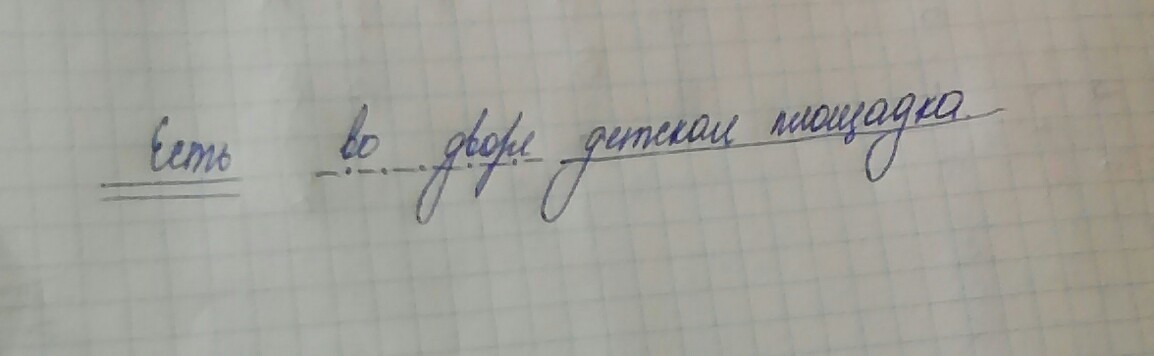 Есть во дворе детская площадка.